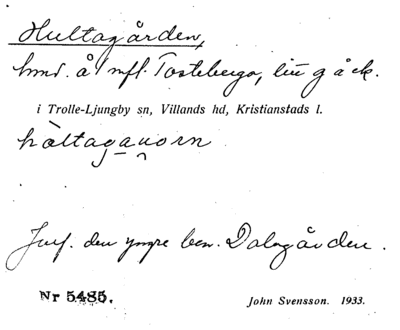 Hultagården,
hmd. å mfl. Tosteberga, litt g å ek.
i Trolle-Ljungby sn, Villands hd, Kristianstads l.
hàltaga̲u̯orn
Jmf. den yngre ben. Dalagården.
Nr 5485.
John Svensson. 1933.